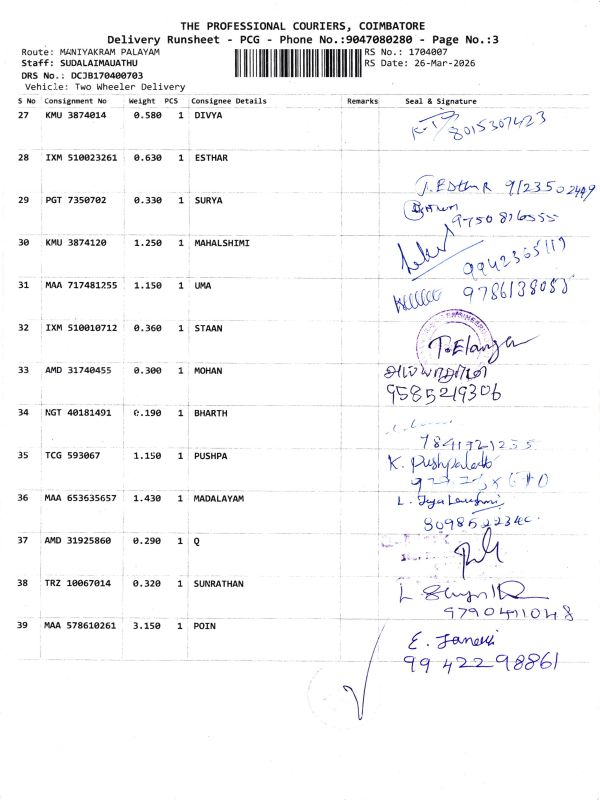 THE PROFESSIONAL COURIERS, COIMBATORE
Delivery Runsheet - PCG - Phone No.:9047080280 - Page No.:3
Route: MANIYAKRAM PALAYAM RS No.: 1704007
Staff: SUDALAIMAUATHU RS Date: 26-Mar-2026
DRS No.: DCJB170400703
Vehicle: Two Wheeler Delivery
S No Consignment No Weight PCS Consignee Details Remarks Seal & Signature
27 KMU 3874014 0.580 1 DIVYA
8015307423
28 IXM 510023261 0.630 1 ESTHAR
J. Esthar
29 PGT 7350702 0.330 1 SURYA
30 KMU 3874120 1.250 1 MAHALSHIMI
31 MAA 717481255 1.150 1 UMA
32 IXM 510010712 0.360 1 STAAN
33 AMD 31740455 0.300 1 MOHAN
9585219306
34 NGT 40181491 0.190 1 BHARTH
35 TCG 593067 1.150 1 PUSHPA
36 MAA 653635657 1.430 1 MADALAYAM
37 AMD 31925860 0.290 1 Q
38 TRZ 10067014 0.320 1 SUNRATHAN
9790411048
39 MAA 578610261 3.150 1 POIN
9942298861